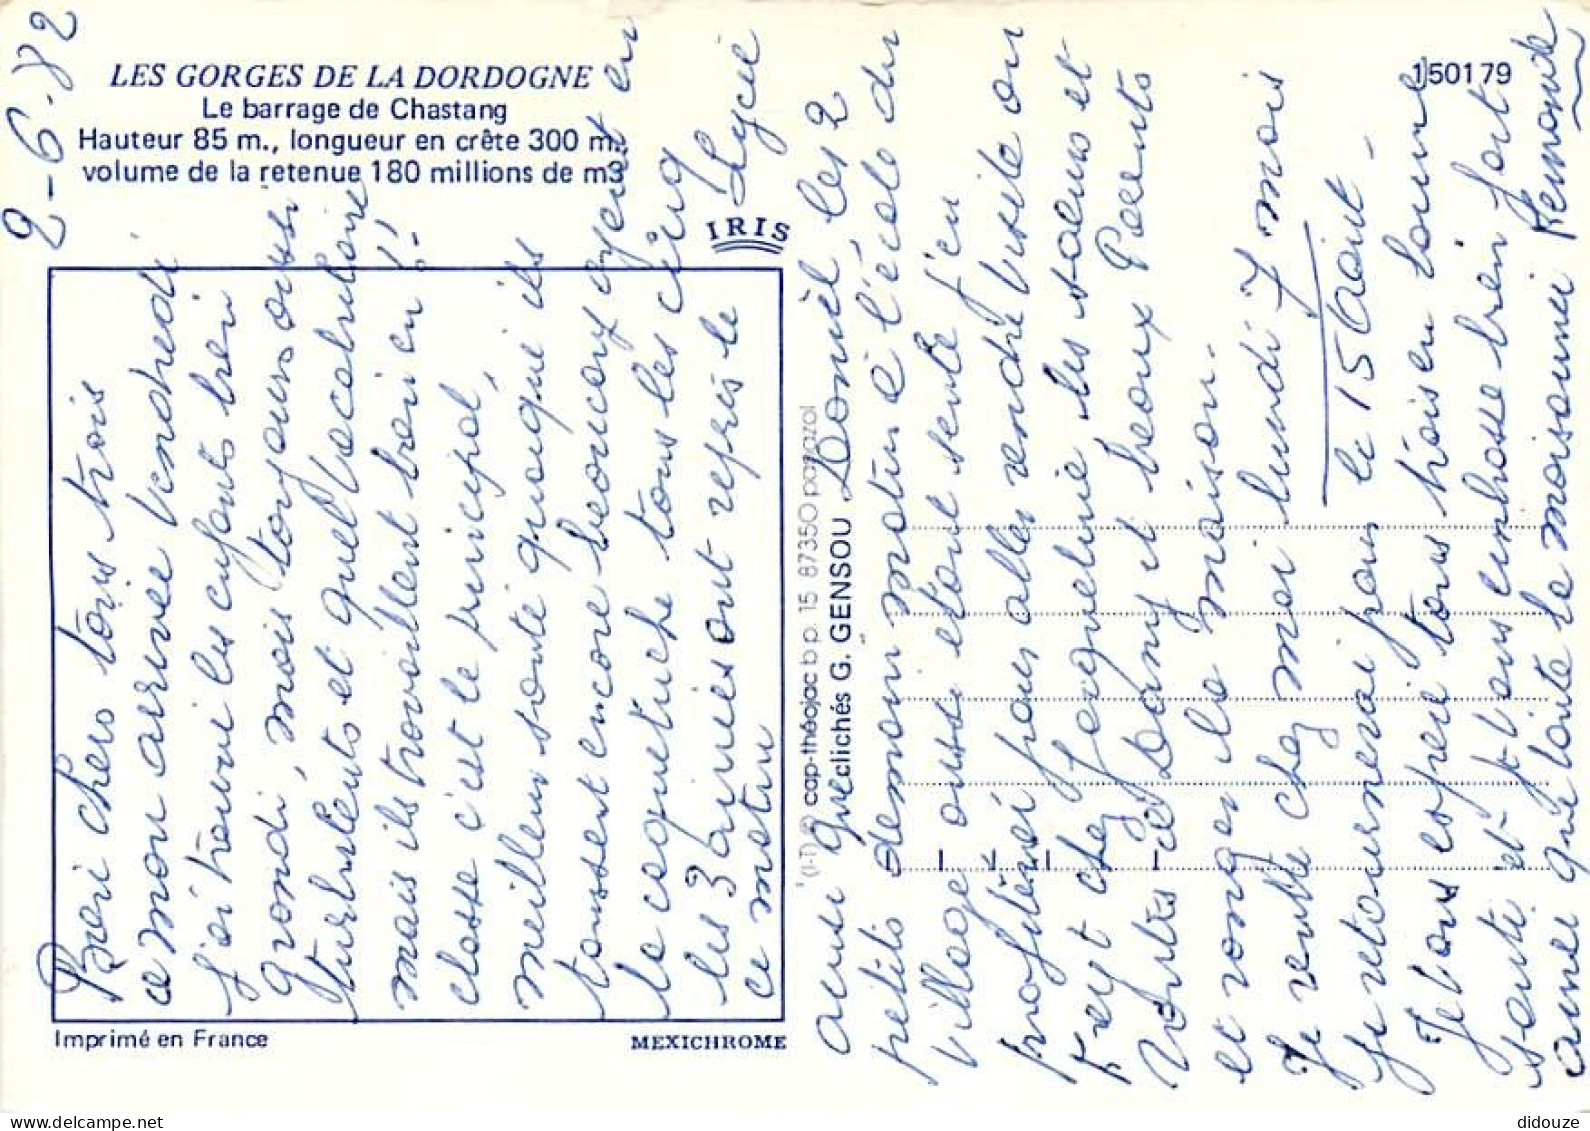 2-6-82
LES GORGES DE LA DORDOGNE
Le barrage de Chastang
Hauteur 85 m., longueur en crête 300 m.
volume de la retenue 180 millions de m3
150179
IRIS
chers tous trois
a mon arrivée Vendredi
j'ai trouvé les enfants bien
grandi, mais toujours aussi
turbulents et quel vocabulaire
mais ils travaillent bien en !!
classe c'est le principal,
meilleur santé quoique ils
toussent encore beaucoup ayent eu
la coqueluche tous les cinq
les 3 ainés ont repris le Lycée
ce matin
Daniel, les 2
petits demain matin a l'école du
Village aussi étant seule j'en
profiterai pour aller rendre visite ou
Jacqueline les soeurs et
Dany et beaux Parents
et ronger la maison.
Je rentre chez moi lundi 7 mais
je retournerai pour le 15 Août -
Je vous espère tous trois en bonne
santé et vous embrasse bien forts
ainsi que toute la maisonnée Raymonde
(I-T) cap-théojac b p. 15 87350 panazol
clichés G. GENSOU
Imprimé en France
MEXICHROME
didouze